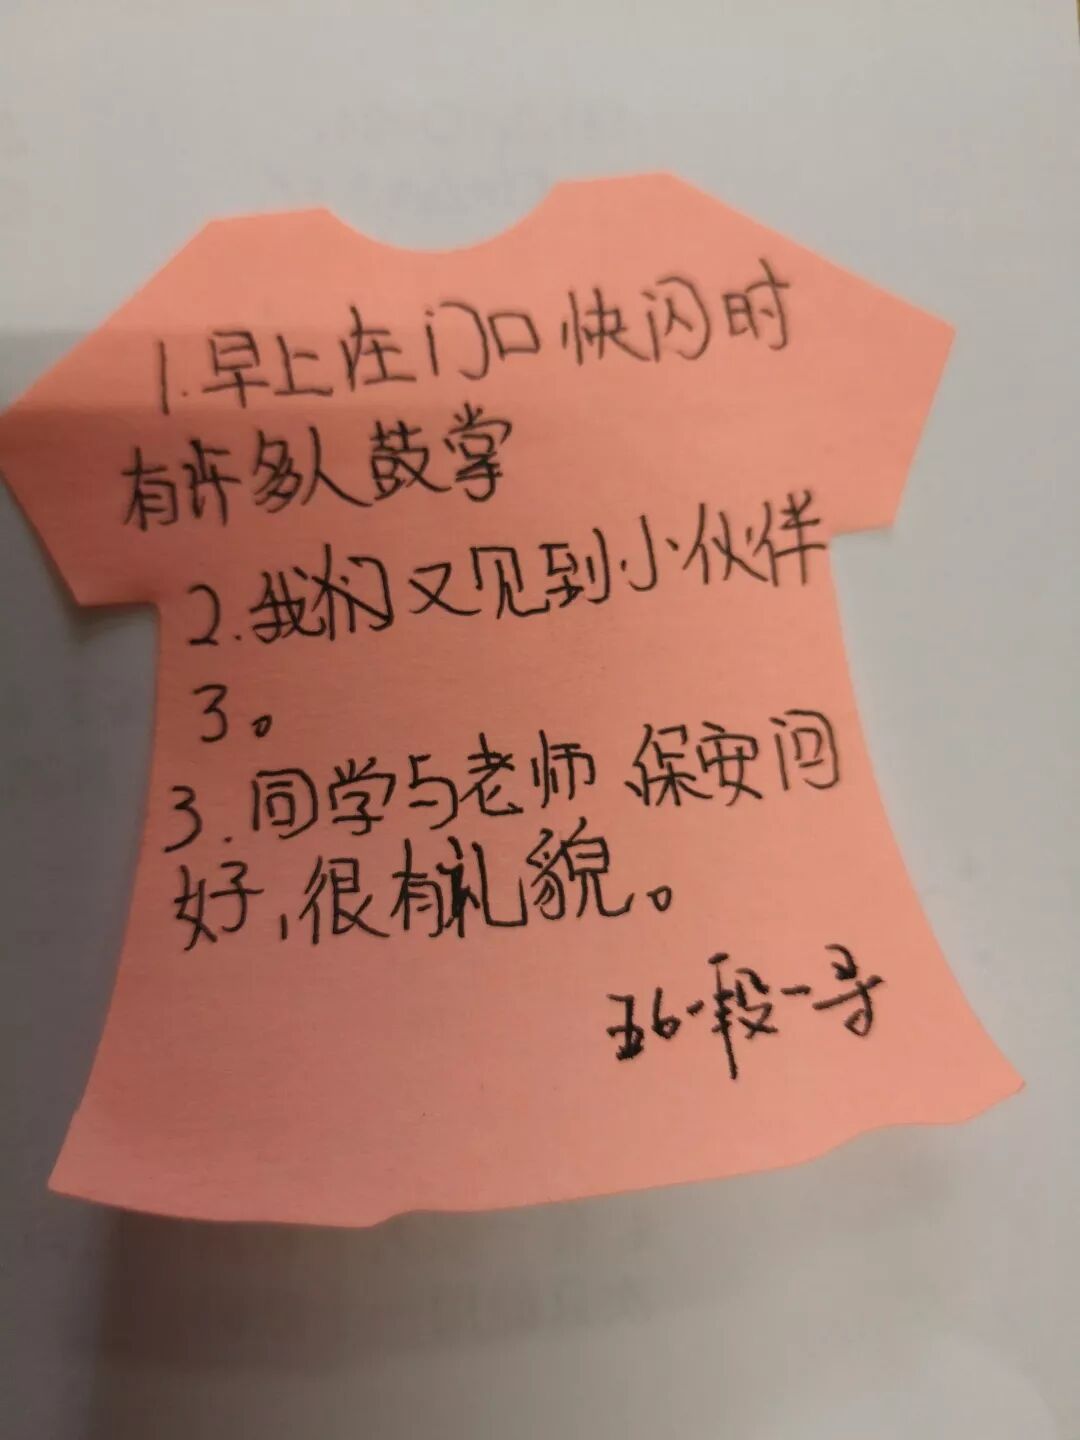 1.早上在门口快闪时
有许多人鼓掌
2.我们又见到小伙伴
3。
3.同学与老师、保安问
好,很有礼貌。
五6段一寻